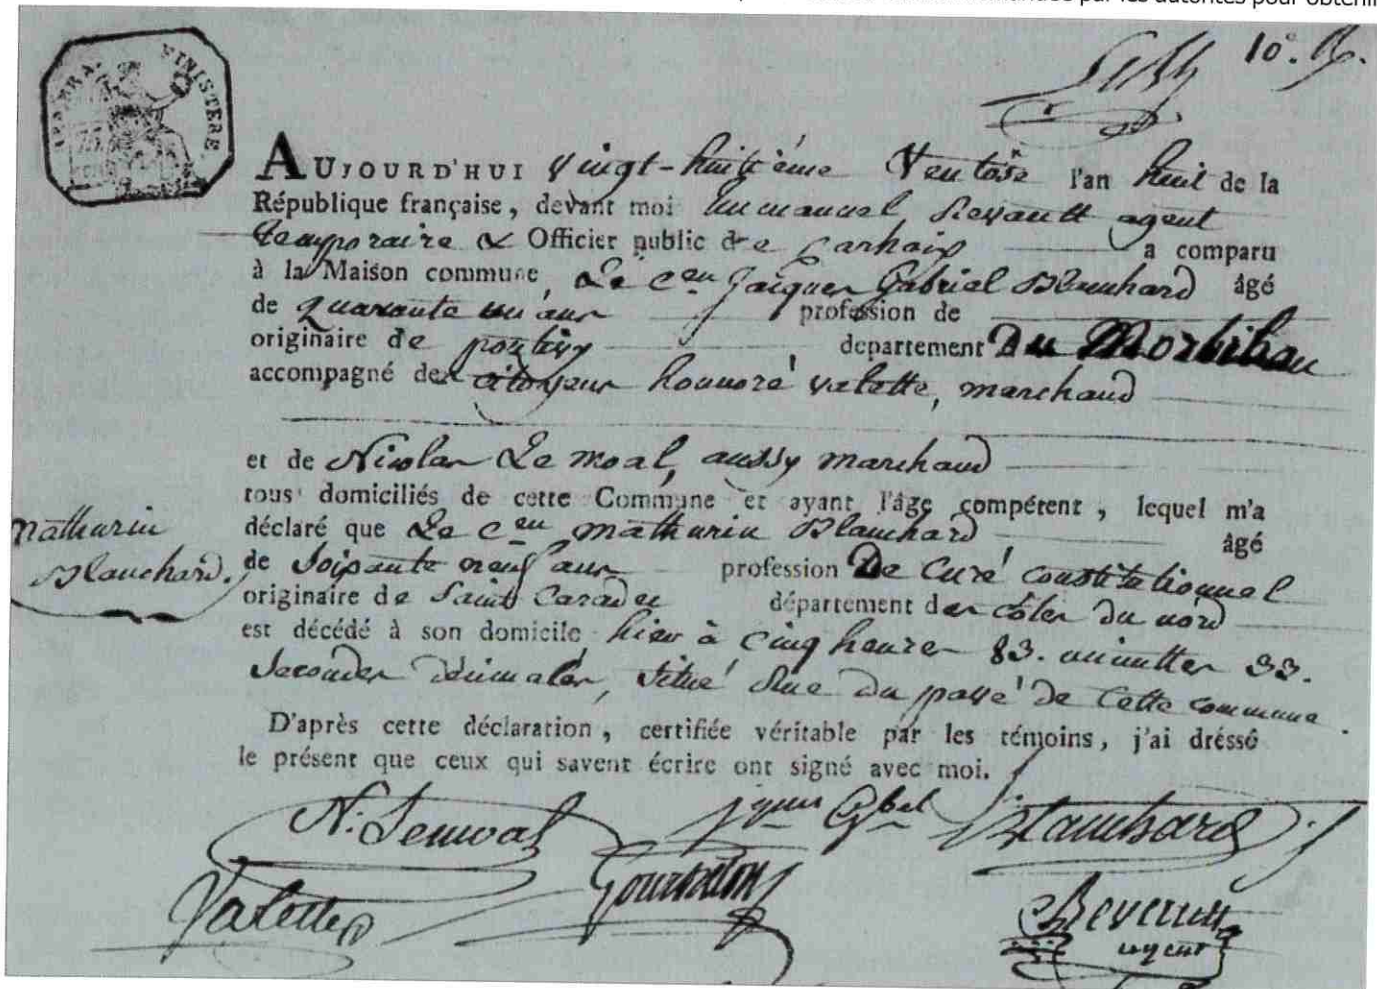 par les autorités pour obtenir
10e.
MINISTERE
AUJOURD'HUI Vingt-huitième Ventôse l'an huit de la
République française, devant moi Emmanuel agent
temporaire & Officier public de Carhaix a comparu
à la Maison commune, Le cen Jacques Gabriel Blanchard âgé
de quarante un ans profession de
originaire de pontivy departement Du Morbihan
accompagné des citoyens honnoré valette, marchand
et de Nicolas Le moal, aussy marchand
tous domiciliés de cette Commune et ayant l'âge compétent, lequel m'a
déclaré que Le cen mathurin Blanchard âgé
mathurin
Blanchard.
de soixante neuf ans profession De Curé constitutionnel
originaire de Saint Caradec département des côtes du nord
est décédé à son domicile hier à cinq heures 83. minuttes 33.
Secondes décimales, situé Rue du pavé de Cette commune
D'après cette déclaration, certifiée véritable par les témoins, j'ai dréssé
le présent que ceux qui savent écrire ont signé avec moi.
N. Lemoal jques Gbel Blanchard
Valette
agent